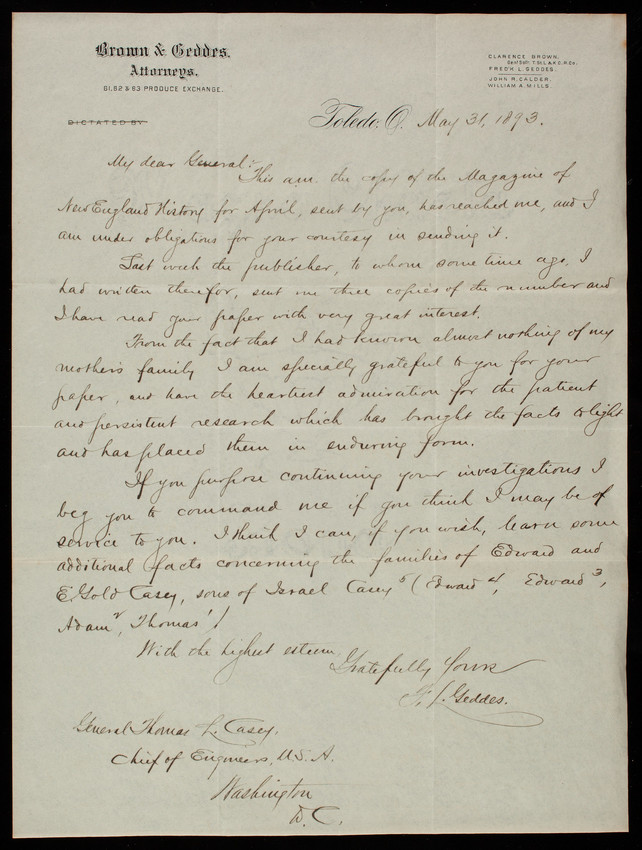 Brown & Geddes.
Attorneys.
61, 62 & 63 PRODUCE EXCHANGE.
CLARENCE BROWN,
Gen'l Sol'r. T. St. L. & K. C. R. Co.
FRED'K L. GEDDES.
JOHN R. CALDER.
WILLIAM A. MILLS.
DICTATED BY
Toledo, O. May 31, 1893.
My dear General:
This a.m. the copy of the Magazine of
New England History for April, sent by you, has reached me, and I
am under obligations for your courtesy in sending it.
Last week the publisher, to whom some time ago I
had written therefor, sent me three copies of the number and
I have read your paper with very great interest.
From the fact that I had known almost nothing of my
mother's family I am specially grateful to you for your
paper, and have the heartiest admiration for the patient
and persistent research which has brought the facts to light
and has placed them in enduring form.
If you purpose continuing your investigations I
beg you to command me if you think I may be of
service to you. I think I can, if you wish, learn some
additional facts concerning the families of Edward and
E. Gold Casey, sons of Israel Casey 5 (Edward 4, Edward 3,
Adam 2, Thomas 1)
With the highest esteem,
Gratefully Yours
F. L. Geddes.
General Thomas L. Casey.
Chief of Engineers, U.S.A.
Washington
D.C.